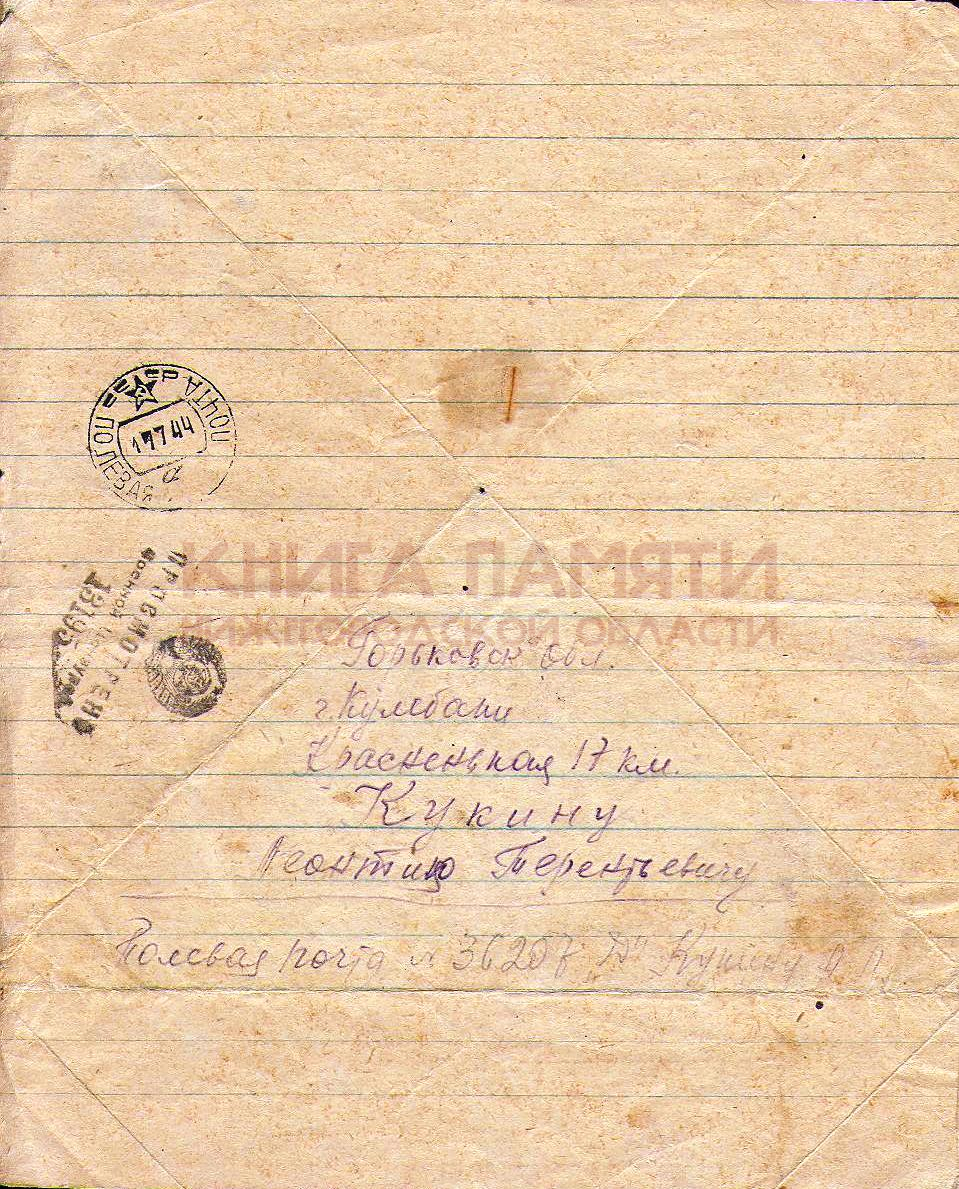 ПОЛЕВАЯ ПОЧТА
17 7 44
а
ПРОСМОТРЕНО
Военной Цензурой
13195
КНИГА ПАМЯТИ
НИЖЕГОРОДСКОЙ ОБЛАСТИ
Горьковск обл.
г. Кулебаки
Красненькая 17 км.
Кукину
Леонтию Терентьевичу
Полевая почта № 36207 "Д" Кукину